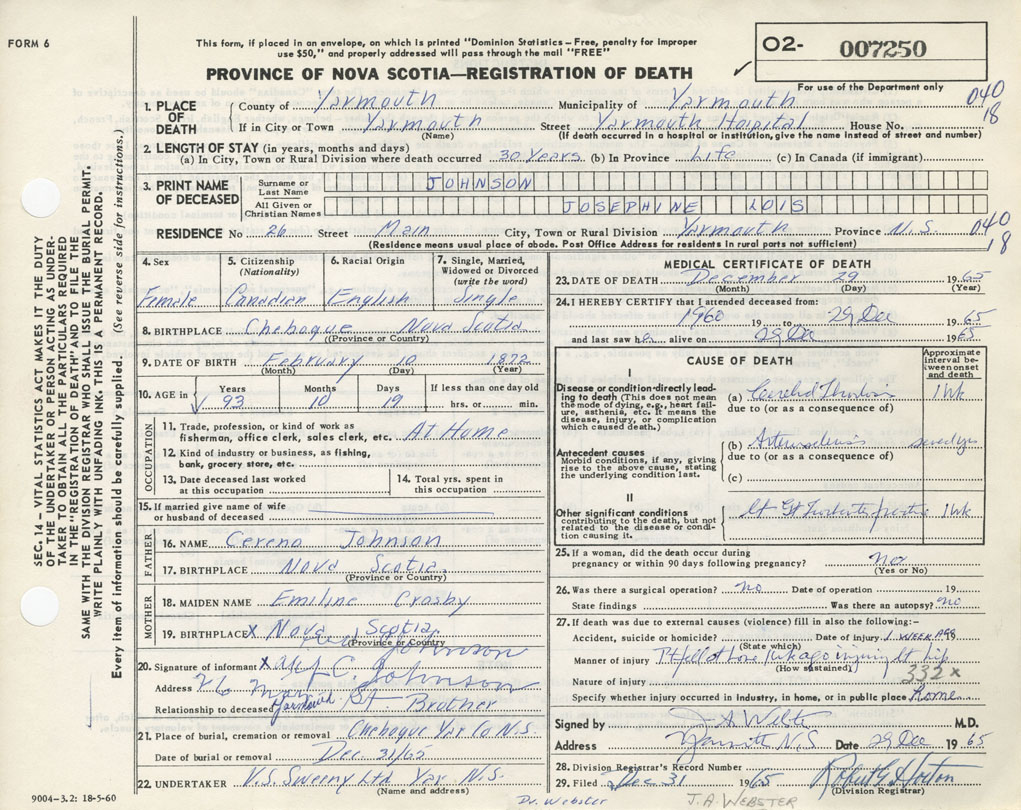 FORM 6
This form, if placed in an envelope, on which is printed "Dominion Statistics – Free, penalty for improper
use $50," and properly addressed will pass through the mail "FREE"
PROVINCE OF NOVA SCOTIA—REGISTRATION OF DEATH
✓
O2- 007250
For use of the Department only
040
18
1. PLACE OF DEATH { County of Yarmouth Municipality of Yarmouth
If in City or Town Yarmouth Street Yarmouth Hospital House No.
(Name) (If death occurred in a hospital or institution, give the name instead of street and number)
2. LENGTH OF STAY (in years, months and days)
(a) In City, Town or Rural Division where death occurred 30 Years (b) In Province Life (c) In Canada (if immigrant)
3. PRINT NAME OF DECEASED
Surname or Last Name JOHNSON
All Given or Christian Names JOSEPHINE LOIS
RESIDENCE No 26 Street Main City, Town or Rural Division Yarmouth Province N.S.
040
18
(Residence means usual place of abode. Post Office Address for residents in rural parts not sufficient)
4. Sex
Female
5. Citizenship (Nationality)
Canadian
6. Racial Origin
English
7. Single, Married, Widowed or Divorced (write the word)
Single
8. BIRTHPLACE Chebogue Nova Scotia
(Province or Country)
9. DATE OF BIRTH February 10 1872
(Month) (Day) (Year)
10. AGE in
Years 93
Months 10
Days 19
If less than one day old
hrs. or min.
OCCUPATION
11. Trade, profession, or kind of work as
fisherman, office clerk, sales clerk, etc. At Home
12. Kind of industry or business, as fishing,
bank, grocery store, etc.
13. Date deceased last worked
at this occupation
14. Total yrs. spent in
this occupation
15. If married give name of wife
or husband of deceased
FATHER
16. NAME Cereno Johnson
17. BIRTHPLACE Nova Scotia
(Province or Country)
MOTHER
18. MAIDEN NAME Emiline Crosby
19. BIRTHPLACE x Nova Scotia
(Province or Country)
20. Signature of informant x C. Johnson
Address 26 Main St.
Relationship to deceased Brother
21. Place of burial, cremation or removal Chebogue Yar Co N.S.
Date of burial or removal Dec 31/65
22. UNDERTAKER V.S. Sweeny Ltd Yar. N.S.
(Name and address)
MEDICAL CERTIFICATE OF DEATH
23. DATE OF DEATH December 29 1965
(Month) (Day) (Year)
24. I HEREBY CERTIFY that I attended deceased from:
1960 19 to 29 Dec 1965
and last saw her alive on 29 Dec 1965
CAUSE OF DEATH
Approximate interval between onset and death
I
Disease or condition directly leading to death (This does not mean the mode of dying, e.g., heart failure, asthenia, etc. It means the disease, injury, or complication which caused death.)
(a) 1 Wk
due to (or as a consequence of)
Antecedent causes
Morbid conditions, if any, giving rise to the above cause, stating the underlying condition last.
(b)
due to (or as a consequence of)
(c)
II
Other significant conditions
contributing to the death, but not related to the disease or condition causing it.
1 Wk
25. If a woman, did the death occur during
pregnancy or within 90 days following pregnancy? no
(Yes or No)
26. Was there a surgical operation? no Date of operation 19
State findings Was there an autopsy? no
27. If death was due to external causes (violence) fill in also the following:–
Accident, suicide or homicide? Date of injury 1 WEEK AGO
(State which)
Manner of injury
(How sustained)
332 x
Nature of injury
Specify whether injury occurred in industry, in home, or in public place Home
Signed by M.D.
Address N.S. Date 29 Dec 1965
28. Division Registrar's Record Number
29. Filed Dec 31 1965 Robert G Horton
(Division Registrar)
SEC. 14 – VITAL STATISTICS ACT MAKES IT THE DUTY
OF THE UNDERTAKER OR PERSON ACTING AS UNDER-
TAKER TO OBTAIN ALL THE PARTICULARS REQUIRED
IN THE "REGISTRATION OF DEATH" AND TO FILE THE
SAME WITH THE DIVISION REGISTRAR WHO SHALL ISSUE THE BURIAL PERMIT.
WRITE PLAINLY WITH UNFADING INK. THIS IS A PERMANENT RECORD.
Every item of information should be carefully supplied. (See reverse side for instructions.)
9004–3.2: 18-5-60
Dr. Webster
J. A. WEBSTER